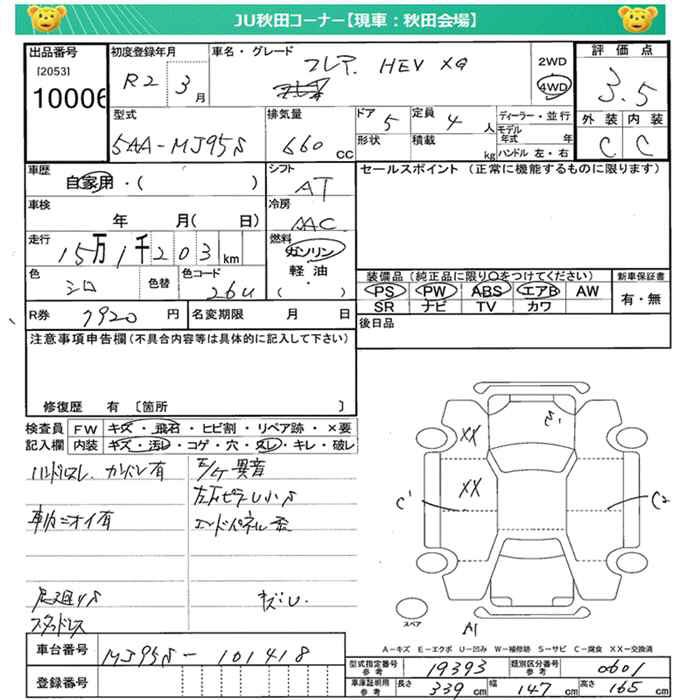 JU秋田コーナー【現車：秋田会場】
出品番号
[2053]
10006
初度登録年月
R2 3月
車名・グレード
フレア HEV XG
2WD
4WD
評価点
3.5
外装 内装
C C
型式
5AA-MJ95S
排気量
660 cc
ドア 5
形状
定員 4 人
積載 kg
ディーラー・並行
モデル年式 年
ハンドル 左・右
車歴
自家用・( )
シフト
AT
セールスポイント (正常に機能するものに限ります)
車検
年 月( 日)
冷房
AAC
走行
15万1千203 km
燃料
ガソリン
軽油
( ・ )
色
シロ
色替
色コード
26U
装備品 (純正品に限り○をつけてください)
PS PW ABS エアB AW
SR ナビ TV カワ
新車保証書
有・無
R券 7920 円
名変期限 月 日
後日品
注意事項申告欄 (不具合内容等は具体的に記入して下さい)
修復歴 有 〔箇所 〕
検査員記入欄
FW キズ・飛石・ヒビ割・リペア跡・×要
内装 キズ・汚レ・コゲ・穴・スレ・キレ・破レ
ハンドルスレ、カンバン有
異音
車内ニオイ有
エンドパネル
スタッドレス
キズ・U.
XX
XX
C1
C2
A1
スペア
A-キズ E-エクボ U-凹み W-補修跡 S-サビ C-腐食 XX-交換済
車台番号
MJ95S-101418
登録番号
型式指定番号 参考
19393
類別区分番号 参考
0601
車庫証明用 参考
長さ 339 cm
幅 147 cm
高さ 165 cm